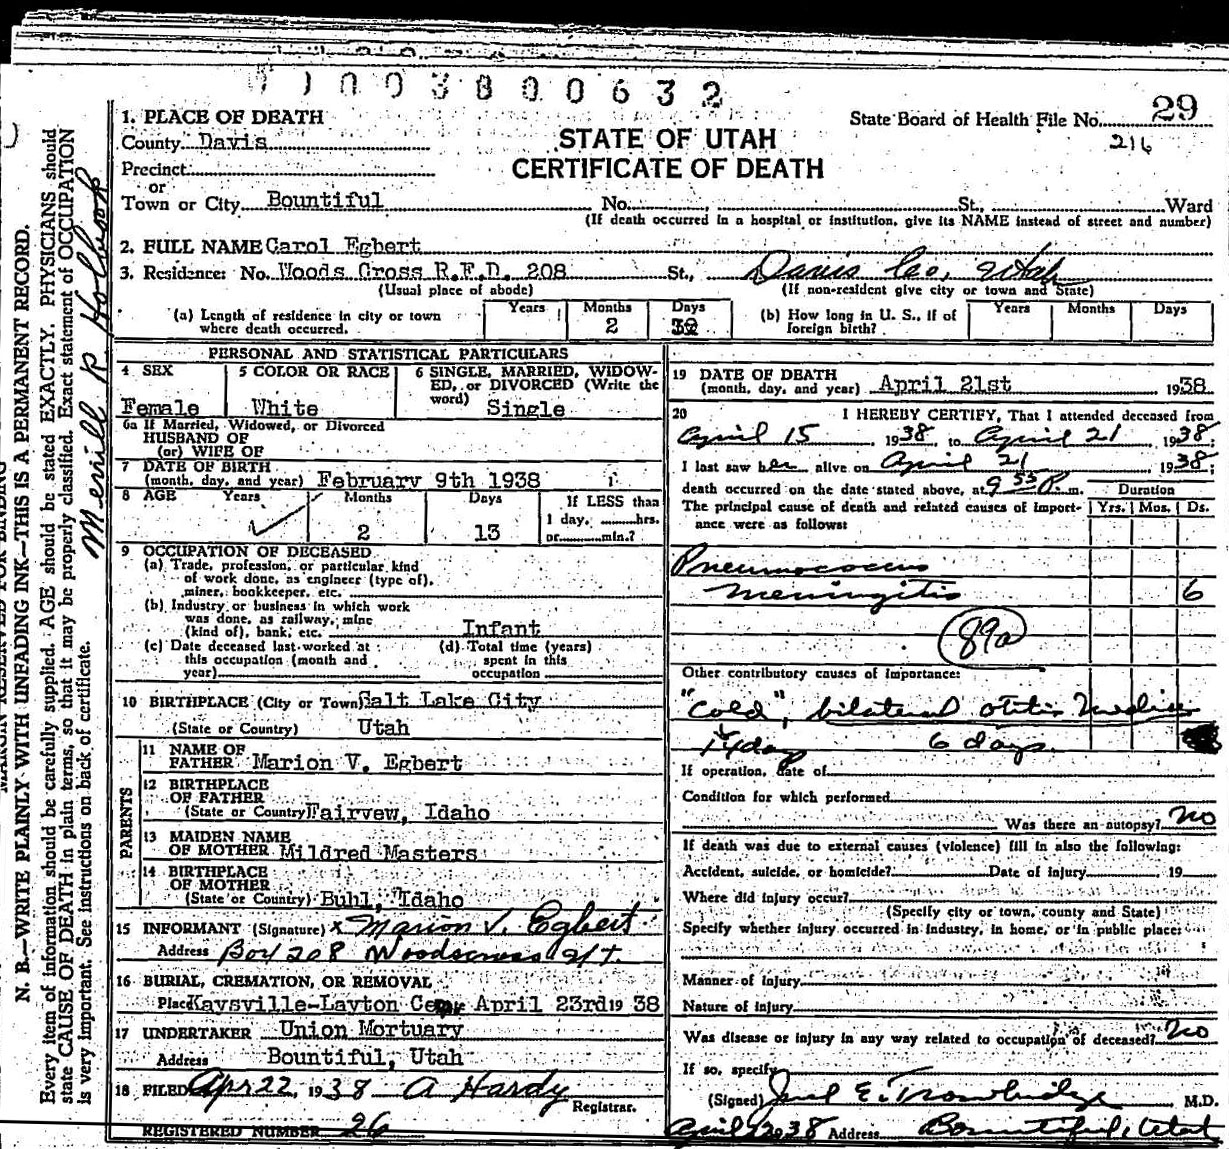 1003800632
State Board of Health File No. 29
216
STATE OF UTAH
CERTIFICATE OF DEATH
1. PLACE OF DEATH
County Davis
Precinct
or
Town or City Bountiful No. St., Ward
(If death occurred in a hospital or institution, give its NAME instead of street and number)
2. FULL NAME Carol Egbert
3. Residence: No. Woods Cross R.F.D. 208 St., Davis Co, Utah
(Usual place of abode) (If non-resident give city or town and State)
(a) Length of residence in city or town where death occurred. Years Months 2 Days
(b) How long in U. S., if of foreign birth? Years Months Days
PERSONAL AND STATISTICAL PARTICULARS
4 SEX Female
5 COLOR OR RACE White
6 SINGLE, MARRIED, WIDOWED, or DIVORCED (Write the word) Single
6a If Married, Widowed, or Divorced
HUSBAND OF
(or) WIFE OF
7 DATE OF BIRTH
(month, day, and year) February 9th 1938
8 AGE Years Months 2 Days 13 If LESS than
1 day, hrs.
or min.?
9 OCCUPATION OF DECEASED
(a) Trade, profession, or particular kind
of work done, as engineer (type of),
miner, bookkeeper, etc.
(b) Industry or business in which work
was done, as railway, mine
(kind of), bank, etc. Infant
(c) Date deceased last worked at
this occupation (month and
year)
(d) Total time (years)
spent in this
occupation
10 BIRTHPLACE (City or Town) Salt Lake City
(State or Country) Utah
PARENTS
11 NAME OF
FATHER Marion V. Egbert
12 BIRTHPLACE
OF FATHER
(State or Country) Fairvew, Idaho
13 MAIDEN NAME
OF MOTHER Mildred Masters
14 BIRTHPLACE
OF MOTHER
(State or Country) Buhl, Idaho
15 INFORMANT (Signature) x Marion V. Egbert
Address Box 208 Woodscross Ut.
16 BURIAL, CREMATION, OR REMOVAL
Place Kaysville-Layton Cem. April 23rd 1938
17 UNDERTAKER Union Mortuary
Address Bountiful, Utah
18 FILED Apr 22, 1938 A Hardy
Registrar.
REGISTERED NUMBER 26
19 DATE OF DEATH
(month, day, and year) April 21st 1938
20 I HEREBY CERTIFY, That I attended deceased from
April 15 1938, to April 21 1938;
I last saw her alive on April 21 1938;
death occurred on the date stated above, at 9 55 P. m.
The principal cause of death and related causes of importance were as follows:
Duration
Yrs. Mos. Ds.
Pneumococcus
Meningitis 6
89a
Other contributory causes of importance:
"Cold", bilateral otitis media
14 days 6 days.
If operation, date of
Condition for which performed
Was there an autopsy? no
If death was due to external causes (violence) fill in also the following:
Accident, suicide, or homicide? Date of injury 19
Where did injury occur?
(Specify city or town, county and State)
Specify whether injury occurred in industry, in home, or in public place:
Manner of injury
Nature of injury
Was disease or injury in any way related to occupation of deceased? no
If so, specify
(Signed) E. Trowbridge M.D.
April 1938 Address Bountiful, Utah
N. B.—WRITE PLAINLY WITH UNFADING INK—THIS IS A PERMANENT RECORD.
Every item of information should be carefully supplied. AGE should be stated EXACTLY. PHYSICIANS should
state CAUSE OF DEATH in plain terms, so that it may be properly classified. Exact statement of OCCUPATION
is very important. See instructions on back of certificate.
Merrill R Holbrook